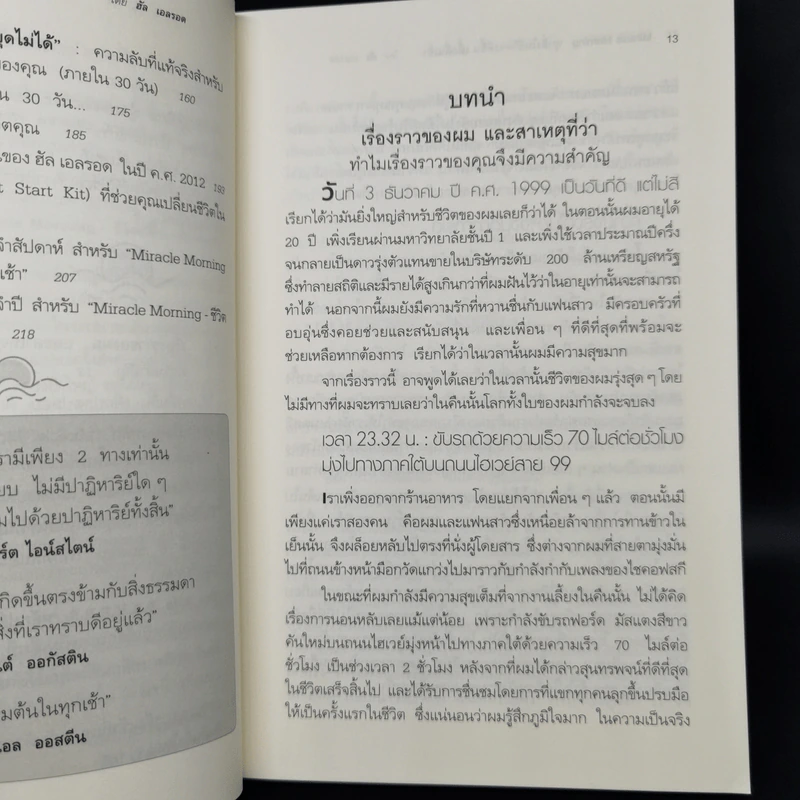 โดย ฮัล เอลรอด
พูดไม่ได้” : ความลับที่แท้จริงสำหรับ
ของคุณ (ภายใน 30 วัน) 160
30 วัน... 175
ตคุณ 185
ของ ฮัล เอลรอด ในปี ค.ศ. 2012 193
Start Kit) ที่ช่วยคุณเปลี่ยนชีวิตใน
จำสัปดาห์ สำหรับ “Miracle Morning
เช้า” 207
จำปี สำหรับ “Miracle Morning - ชีวิต
218
รามีเพียง 2 ทางเท่านั้น
ไม่มีปาฏิหาริย์ใด ๆ
มไปด้วยปาฏิหาริย์ทั้งสิ้น”
ร์ต ไอน์สไตน์
กิดขึ้นตรงข้ามกับสิ่งธรรมดา
สิ่งที่เราทราบดีอยู่แล้ว”
นต์ ออกัสติน
มต้นในทุกเช้า”
อล ออสตีน
13
บทนำ
เรื่องราวของผม และสาเหตุที่ว่า
ทำไมเรื่องราวของคุณจึงมีความสำคัญ
วันที่ 3 ธันวาคม ปี ค.ศ. 1999 เป็นวันที่ดี แต่ไม่สิ
เรียกได้ว่ามันยิ่งใหญ่สำหรับชีวิตของผมเลยก็ว่าได้ ในตอนนั้นผมอายุได้
20 ปี เพิ่งเรียนผ่านมหาวิทยาลัยชั้นปี 1 และเพิ่งใช้เวลาประมาณปีครึ่ง
จนกลายเป็นดาวรุ่งตัวแทนขายในบริษัทระดับ 200 ล้านเหรียญสหรัฐ
ซึ่งทำลายสถิติและมีรายได้สูงเกินกว่าที่ผมฝันไว้ว่าในอายุเท่านั้นจะสามารถ
ทำได้ นอกจากนี้ผมยังมีความรักที่หวานชื่นกับแฟนสาว มีครอบครัวที่
อบอุ่นซึ่งคอยช่วยและสนับสนุน และเพื่อน ๆ ที่ดีที่สุดที่พร้อมจะ
ช่วยเหลือหากต้องการ เรียกได้ว่าในเวลานั้นผมมีความสุขมาก
จากเรื่องราวนี้ อาจพูดได้เลยว่าในเวลานั้นชีวิตของผมรุ่งสุด ๆ โดย
ไม่มีทางที่ผมจะทราบเลยว่าในคืนนั้นโลกทั้งใบของผมกำลังจะจบลง
เวลา 23.32 น. : ขับรถด้วยความเร็ว 70 ไมล์ต่อชั่วโมง
มุ่งไปทางภาคใต้บนถนนไฮเวย์สาย 99
เราเพิ่งออกจากร้านอาหาร โดยแยกจากเพื่อน ๆ แล้ว ตอนนั้นมี
เพียงแค่เราสองคน คือผมและแฟนสาวซึ่งเหนื่อยล้าจากการทานข้าวใน
เย็นนั้น จึงผล็อยหลับไปตรงที่นั่งผู้โดยสาร ซึ่งต่างจากผมที่สายตามุ่งมั่น
ไปที่ถนนข้างหน้ามือกวัดแกว่งไปมาราวกับกำลังกำกับเพลงของไชคอฟสกี
ในขณะที่ผมกำลังมีความสุขเต็มที่จากงานเลี้ยงในคืนนั้น ไม่ได้คิด
เรื่องการนอนหลับเลยแม้แต่น้อย เพราะกำลังขับรถฟอร์ด มัสแตงสีขาว
คันใหม่บนถนนไฮเวย์มุ่งหน้าไปทางภาคใต้ด้วยความเร็ว 70 ไมล์ต่อ
ชั่วโมง เป็นช่วงเวลา 2 ชั่วโมง หลังจากที่ผมได้กล่าวสุนทรพจน์ที่ดีที่สุด
ในชีวิตเสร็จสิ้นไป และได้รับการชื่นชมโดยการที่แขกทุกคนลุกขึ้นปรบมือ
ให้เป็นครั้งแรกในชีวิต ซึ่งแน่นอนว่าผมรู้สึกภูมิใจมาก ในความเป็นจริง